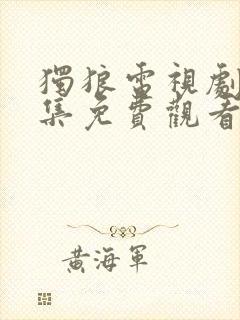 獨狼雷視劇
集免費觀看
黃海軍